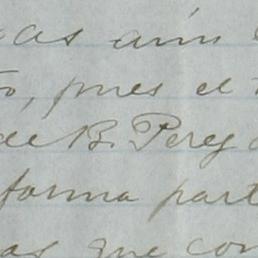 as aún
to, pues el
de B. Perey
forma part
as que con